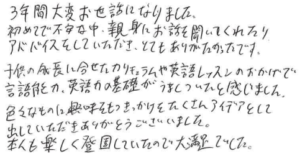 3年間大変お世話になりました。
初めてで不安な中、親身にお話を聞いてくれたり
アドバイスをしていただき、とてもありがたかったです。
子供の成長に合せたカリキュラムや英語レッスンのおかげで
言語能力、英語力の基礎がうまくついたと感じました。
色々なものに興味をもつきっかりをたくさんアイデアとして
出していただきありがとうございました。
本人も楽しく登園していたので大満足でした。